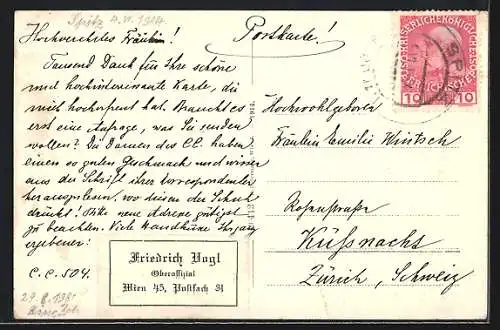 Spitz 4.VI.1914.
Hochverehrtes Fräulein!
Postkarte!
Tausend Dank für Ihre schöne
und hochinteressante Karte, die
mich hocherfreut hat. Braucht es
erst eine Anfrage, was Sie senden
wollen? Die Damen des C.C. haben
einen so guten Geschmack und wissen
aus der Schrift ihrer Correspondenten
herauszulesen, wo diesen der Schuh
drückt! Bitte neue Adresse gütigst
zu beachten. Viele Handküsse Ihr ganz
ergebener:
C.C. 504.
Friedrich Vogl
Oberoffizial
Wien 45, Postfach 31
KAISERLICHE KÖNIGLICHE
10 10
SP
Hochwohlgeboren
Fräulein Emilie Wintsch
Rosenstraße
Küßnacht
Zürich, Schweiz